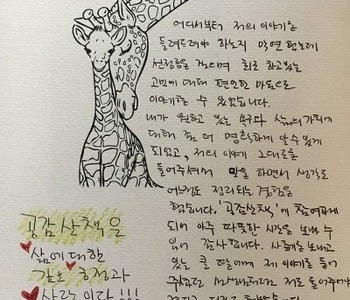 어디서부터 저의 이야기를
들려드려야 하는지 막연 했는데
선정님을 만나며 최근 하고있는
고민에 대해 편안한 마음으로
이야기할 수 있었습니다.
내가 원하고 있는 욕구와 삶의 가치에
대해 좀 더 명확하게 알 수 있게
되었고, 저의 이야기 그대로를
들어주셔서 말을 하면서 생각도
어느정도 정리되는 경험을
했습니다. '공감산책'에 참여하게
되어 아주 따뜻한 시간을 보낼 수
있어 감사합니다. 사람을 보내고
있는 큰 딸에게 제 이야기를 들어
주셨고 저를 들어주어서
공감 산책은
삶에 대한
긍정과
사랑 이다!!!